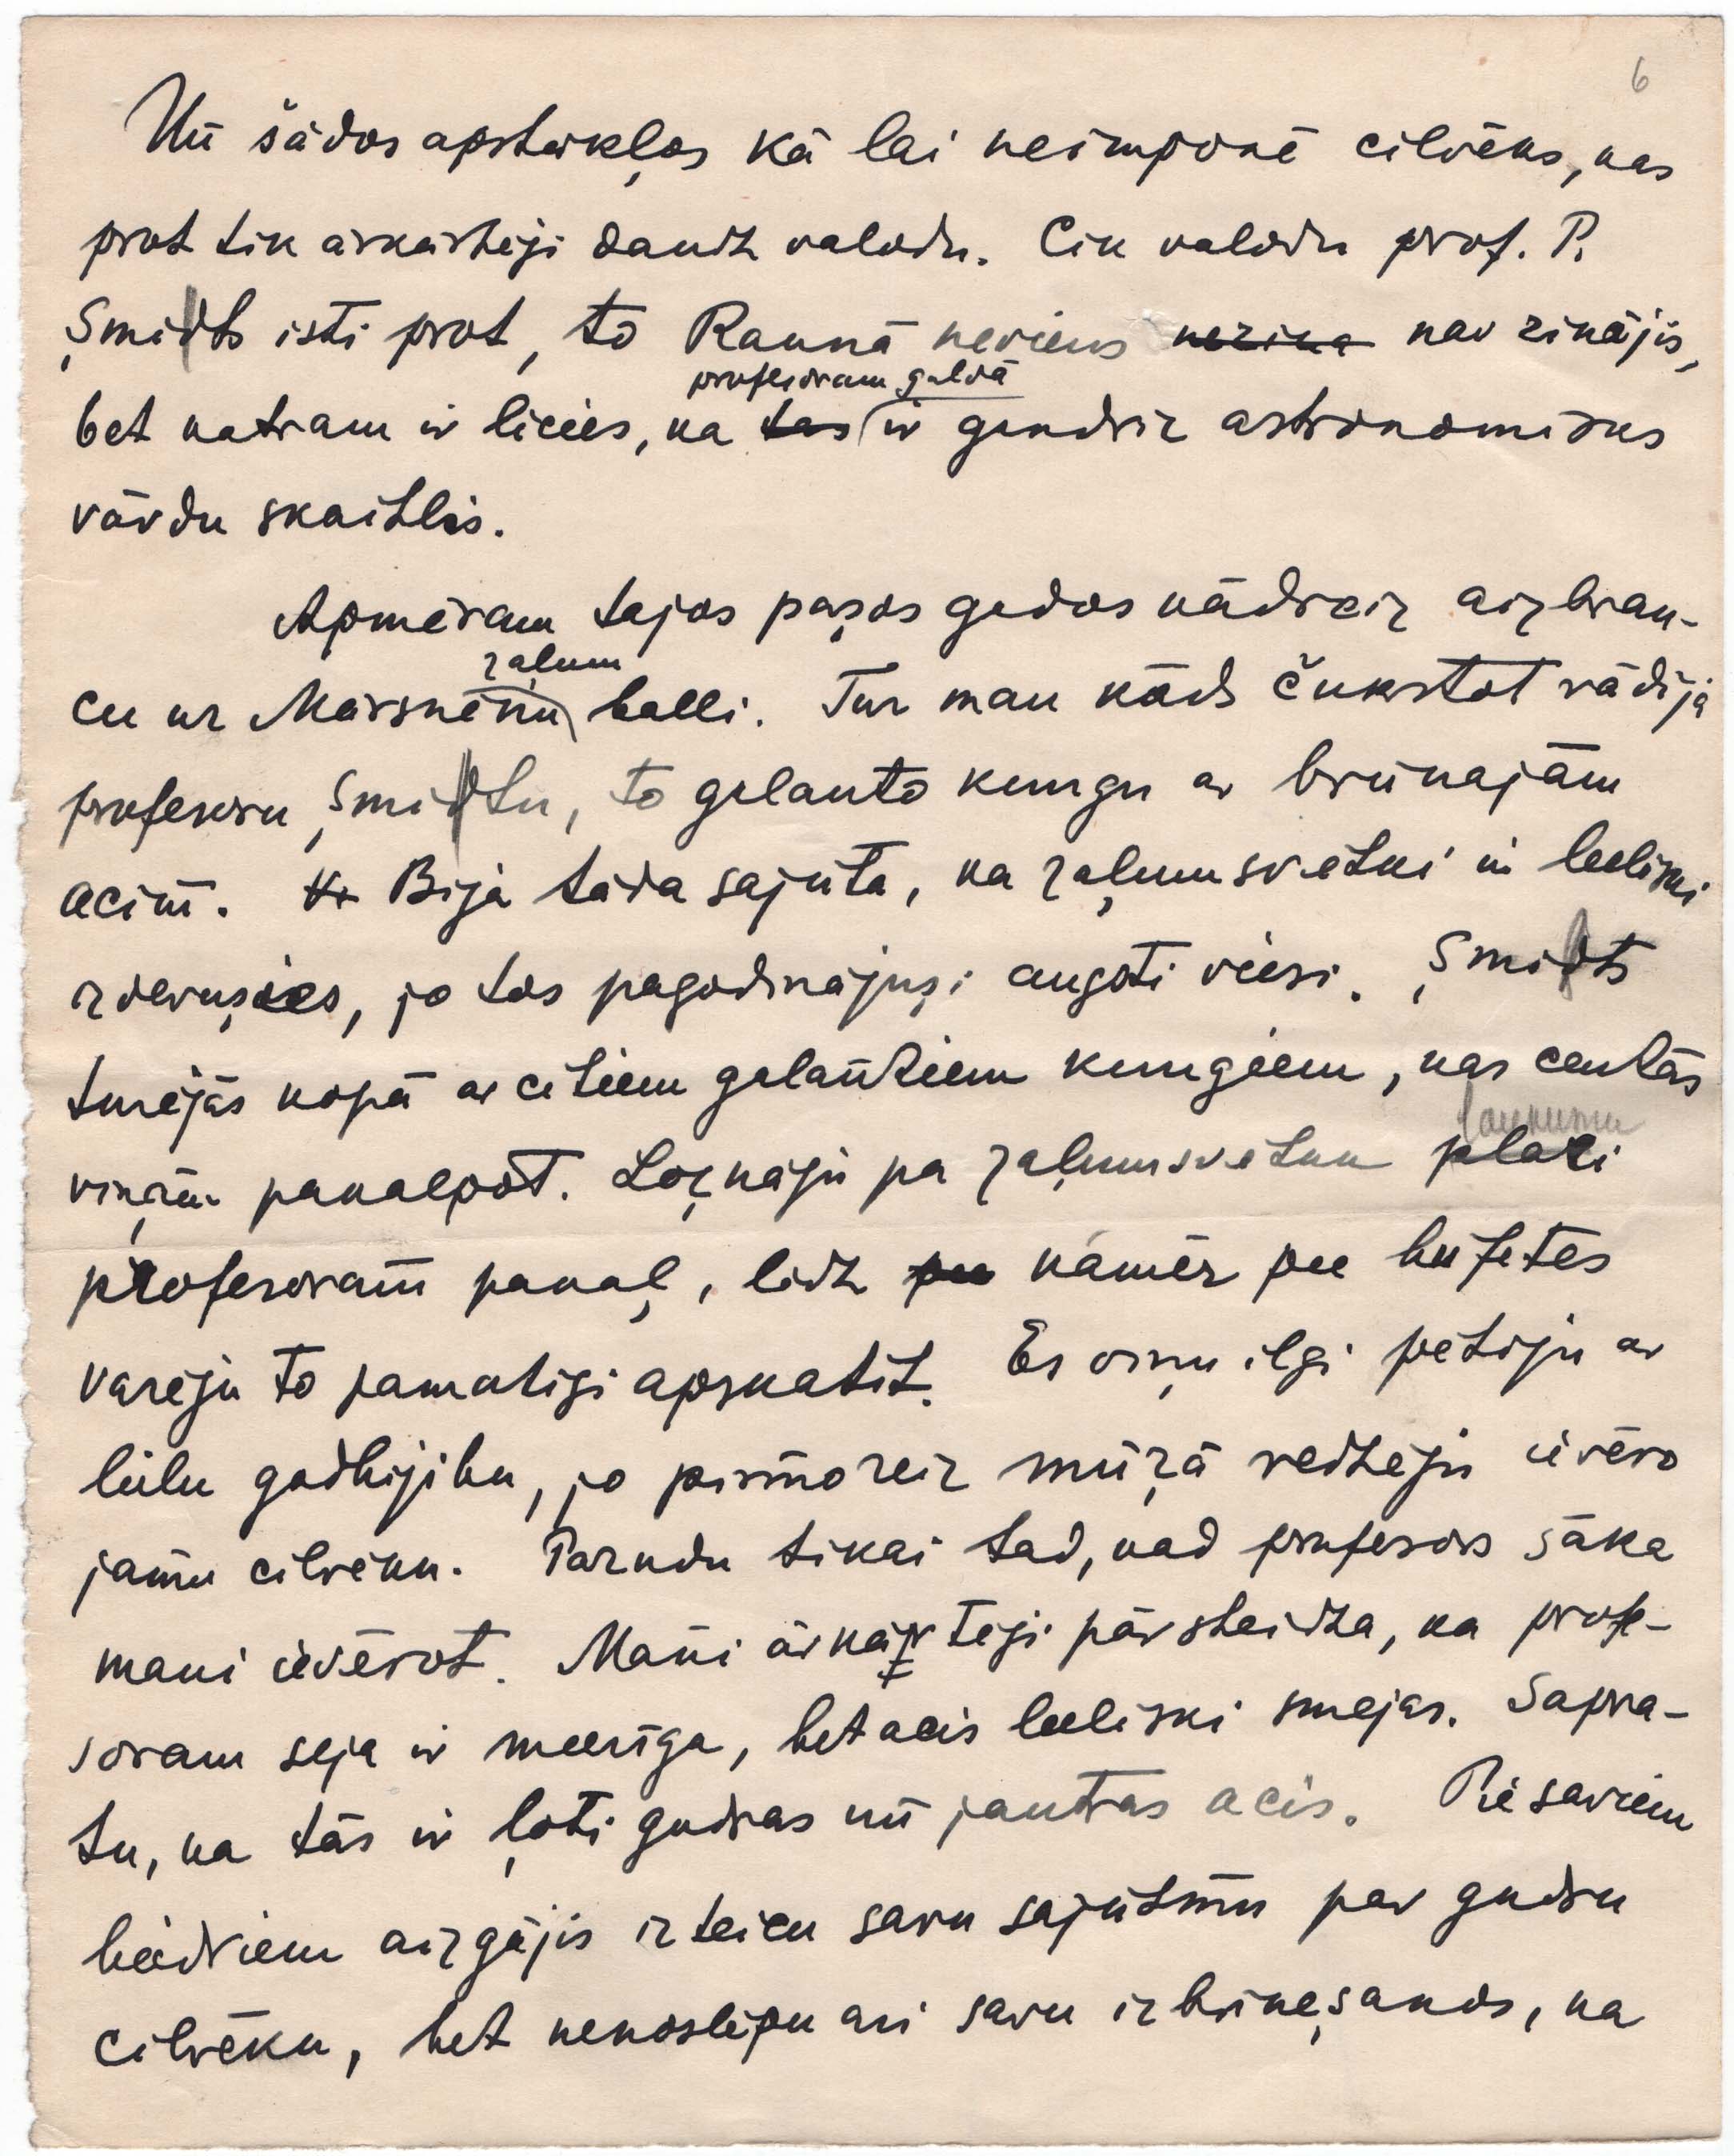 6
Un šādos apstākļos kā lai neimponē cilvēks, kas
prot tik ārkārtēji daudz valodu. Cik valodu prof. P.
Šmidts isti prot, to Raunā neviens nezina nav zinājis,
profesoram galvā
bet katram ir licies, ka tas ir gandriz astronomisks
vārdu skaitlis.
Apmēram tajos pašos gados kādreiz aizbrau-
zaļum
cu uz Mārsnēnu balli. Tur man kāds čukstot rādija
profesoru Šmidtu, to galanto kungu ar brūnajām
acim. Bija tāda sajūta, ka zaļumsvētki ir lieliski
izdevušies, jo tos pagodinājuši augsti viesi. Šmidts
turējās kopā ar citiem galantiem kungiem, kas centās
laukumu
viņam pakalpot. Ložņāju pa zaļumsvētku placi
profesoram pakaļ, lidz pie kāmēr pie bufetes
varēju to pamatigi apskatit. Es viņu ilgi pētiju ar
lielu godbijibu, jo pirmoreiz mūžā redzēju ievēro
jamu cilvēku. Pazudu tikai tad, kad profesors sāka
mani ievērot. Mani ārkārtēji pārsteidza, ka profe-
soram seja ir mierīga, bet acis lieliski smejas. Sapra-
tu, ka tās ir ļoti gudras un jautras acis. Pie saviem
biedriem aizgājis izteicu savu sajūsmu par gudru
cilvēku, bet nenoslēpu ari savu izbrinešanos, ka